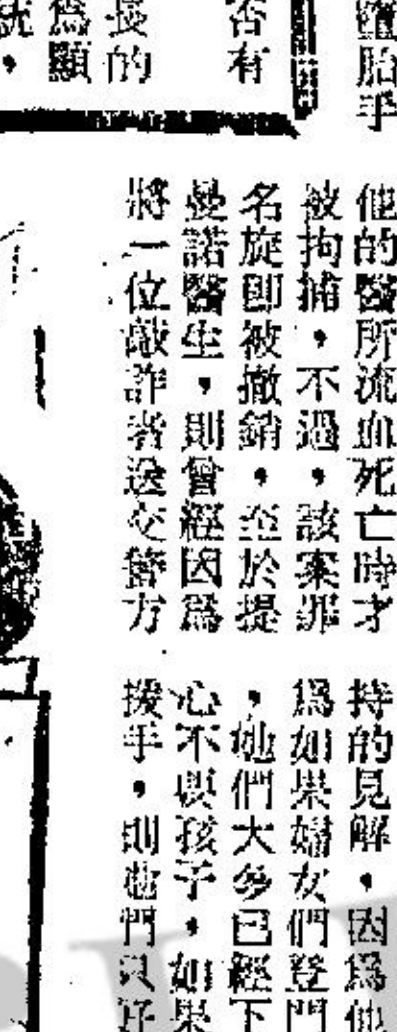 墮胎手
否有
長的
爲顯
統，
他的醫所流血死亡時才
被拘捕，不過，該案罪
名旋即被撤銷。至於提
曼諾醫生，則曾經因爲
將一位敲詐者送交警方
持的見解，因爲他
爲如果婦女們登門
，她們大多已經下
心不要孩子，如果
援手，則她們只好